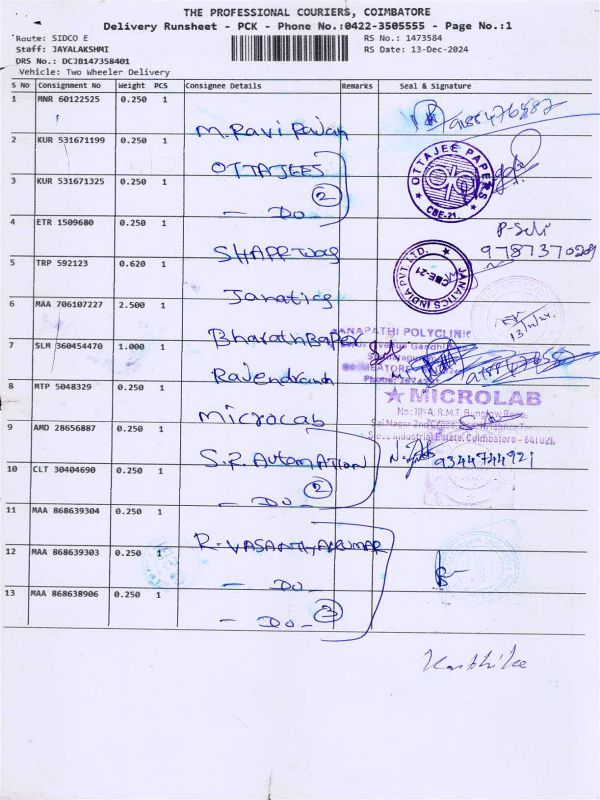 THE PROFESSIONAL COURIERS, COIMBATORE
Delivery Runsheet - PCK - Phone No.:0422-3505555 - Page No.:1
Route: SIDCO E
RS No.: 1473584
Staff: JAYALAKSHMI
RS Date: 13-Dec-2024
DRS No.: DCJB147358401
Vehicle: Two Wheeler Delivery
S No Consignment No Weight PCS Consignee Details Remarks Seal & Signature
1 MNR 60122525 0.250 1
M. Ravi Rajan
2 KUR 531671199 0.250 1
OTTAJEES
OTTAJEE PAPERS
CBE-21.
3 KUR 531671325 0.250 1
- DO - 2
4 ETR 1509680 0.250 1
P-Selvi
9787370289
5 TRP 592123 0.620 1
Janatics
JANATICS INDIA PVT LTD.
CBE-21
6 MAA 706107227 2.500 1
Bharath Paper
13/12/24
7 SLM 360454470 1.000 1
Rajendran
GANAPATHI POLYCLINIC
8 MTP 5048329 0.250 1
Microlab
★ MICROLAB
No:18-A, R.M.T. Bunglow Road,
Sai Nagar 2nd Cross,
Sidco Industrial Estate, Coimbatore - 641 021.
9 AMD 28656887 0.250 1
S.P. Automation
9344744921
10 CLT 30404690 0.250 1
- DO - 2
11 MAA 868639304 0.250 1
R-VASANTHAKUMAR
12 MAA 868639303 0.250 1
- DO -
13 MAA 868638906 0.250 1
- DO - 3
Karthika